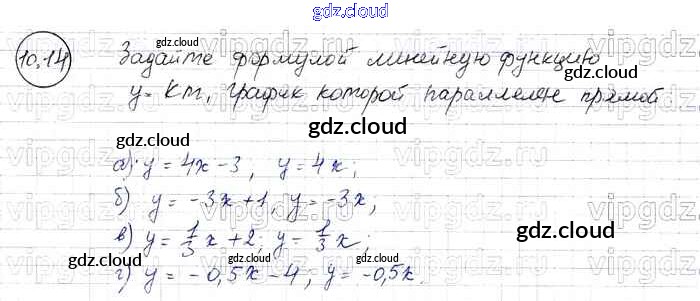 gdz.cloud
10.14 Задайте формулой линейную функцию
gdz.cloud
y = Km, график которой параллелен прямой
gdz.cloud
а) y = 4x - 3, y = 4x;
gdz.cloud
б) y = -3x + 1, y = -3x;
gdz.cloud
в) y = 1/3 x + 2, y = 1/3 x;
г) y = -0,5x - 4; y = -0,5x.
gdz.cloud